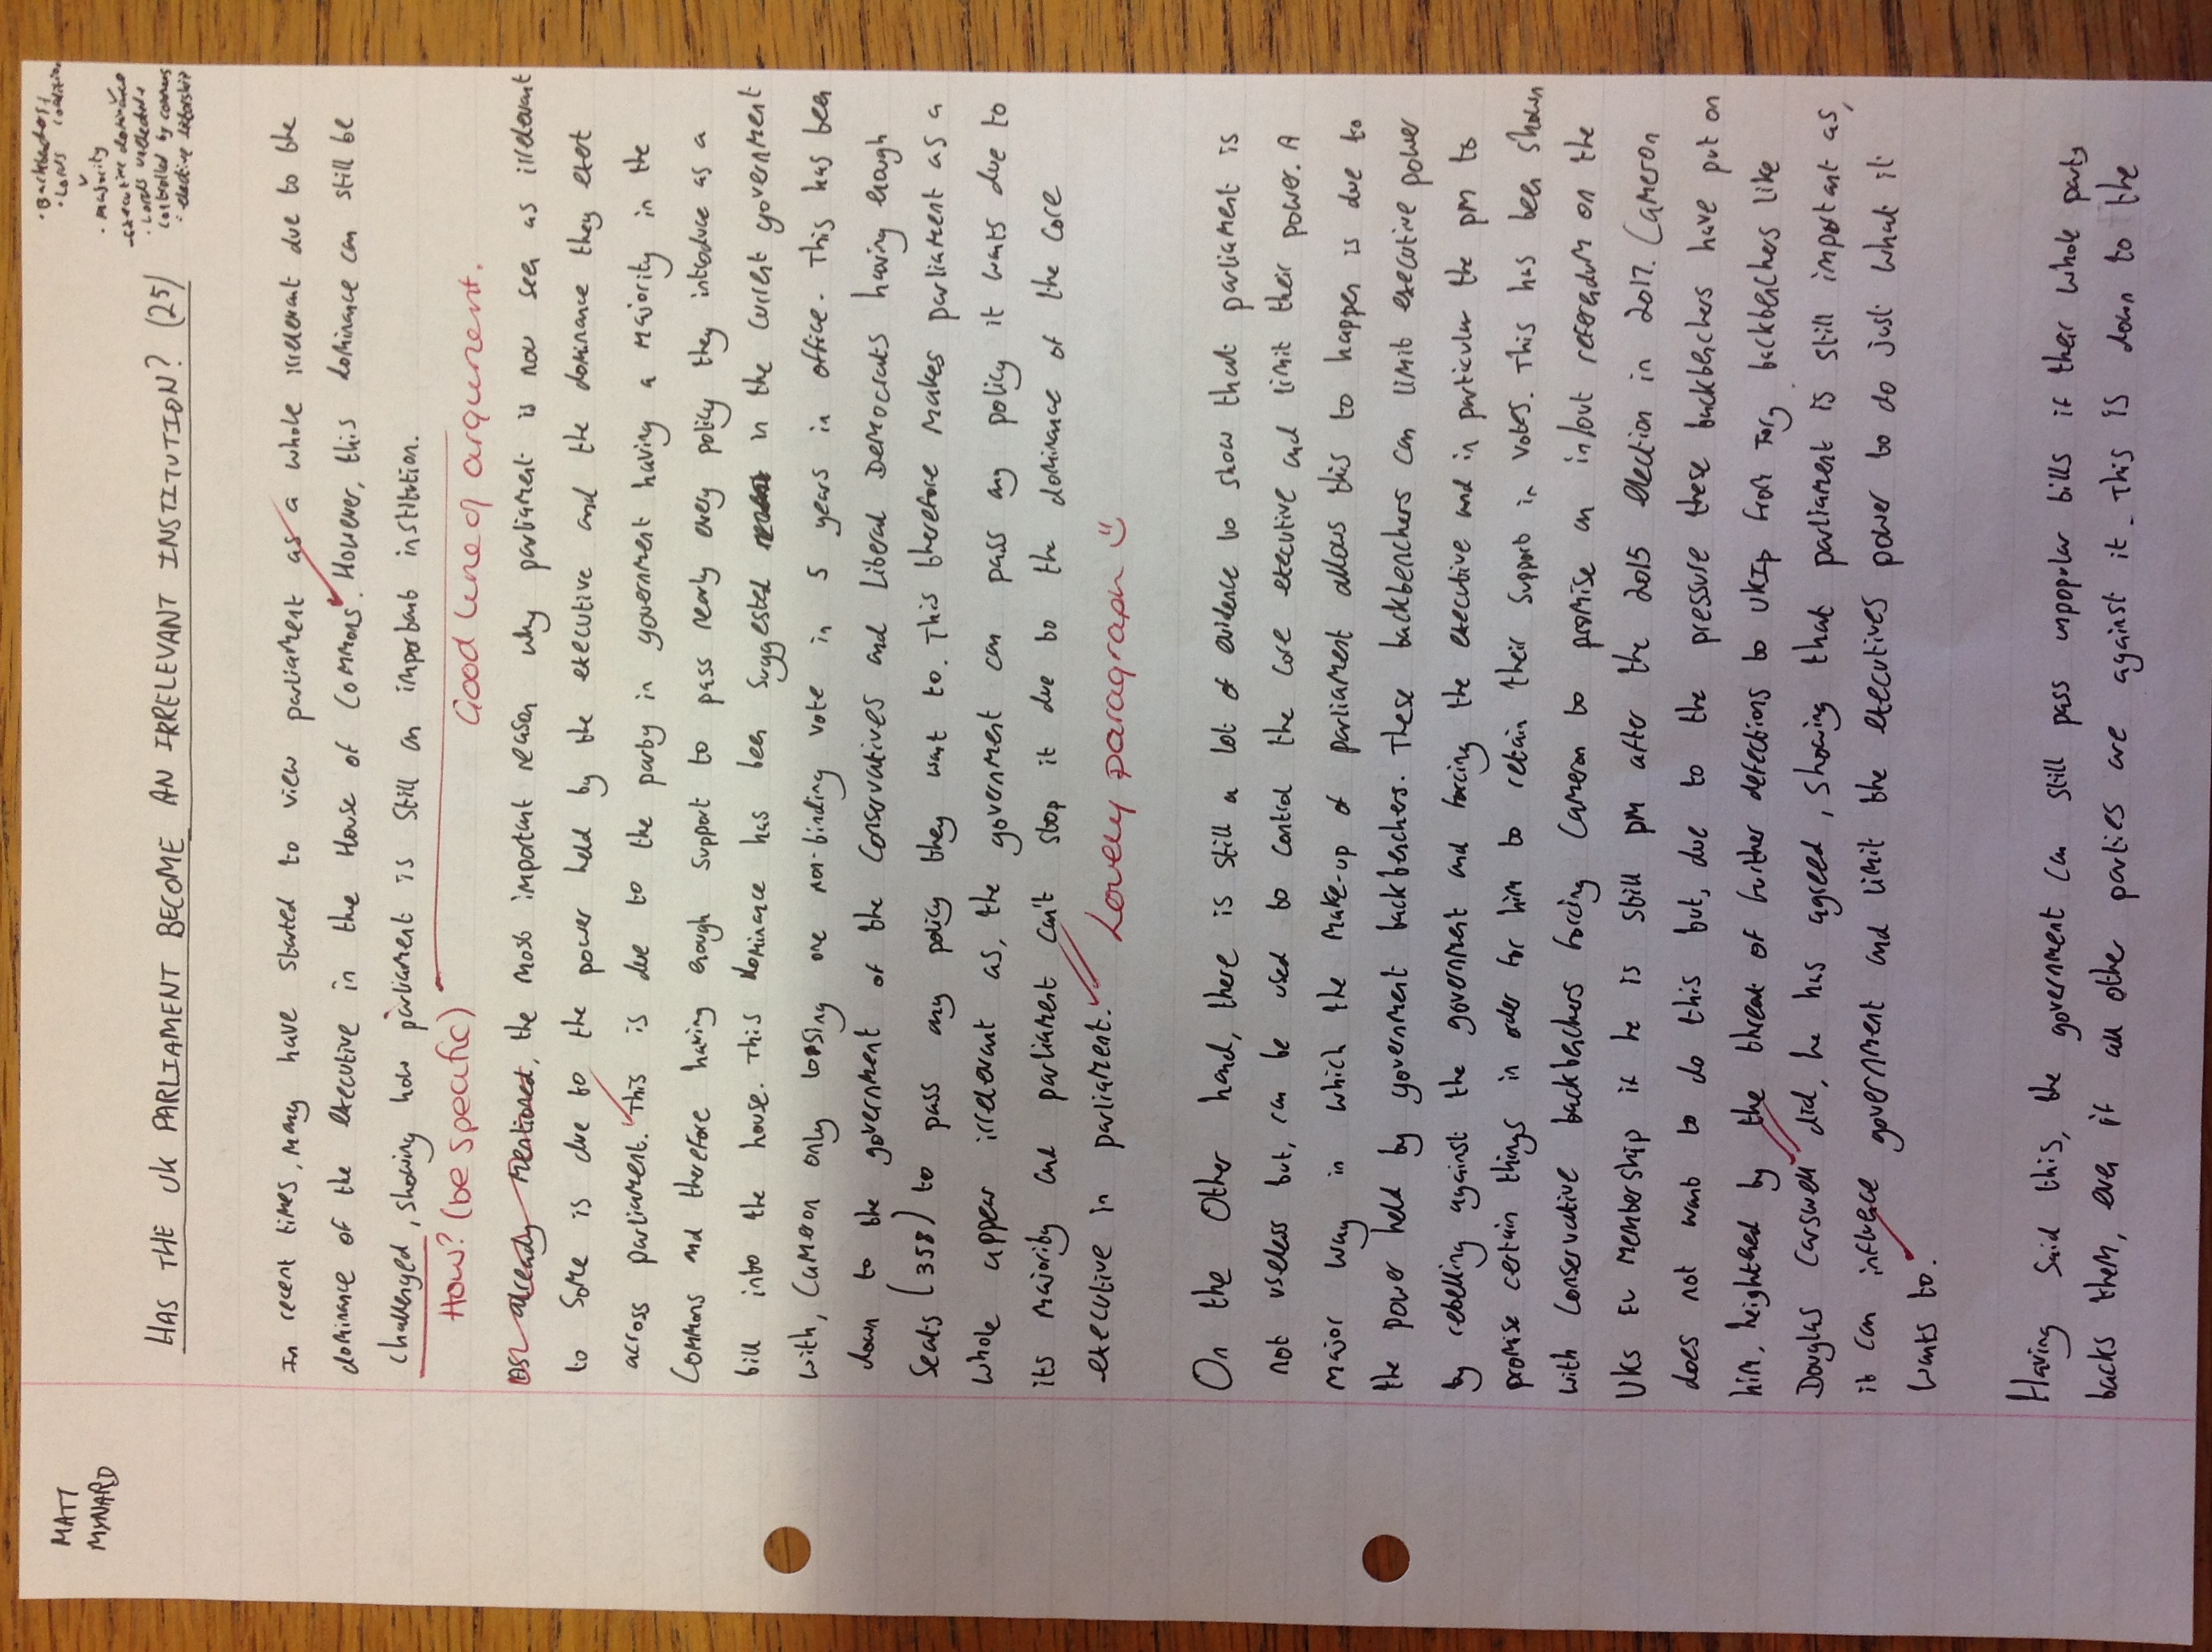 MATT
MYNARD
· Backbenchers
· Lords
· majority
- executive dominance
· Lords unelected +
controlled by commons
· elective dictatorship
HAS THE UK PARLIAMENT BECOME AN IRRELEVANT INSTITUTION? (25)
In recent times, many have started to view parliament as a whole irrelevant due to the
dominance of the executive in the House of Commons. However, this dominance can still be
challenged, showing how parliament is still an important institution.
How? (be specific)
Good line of argument.
As already mentioned, the most important reason why parliament is now seen as irrelevant
to some is due to the power held by the executive and the dominance they exert
across parliament. This is due to the party in government having a majority in the
Commons and therefore having enough support to pass nearly every policy they introduce as a
bill into the house. This dominance has been suggested in the current government
with, Cameron only lossing one non-binding vote in 5 years in office. This has been
down to the government of the Conservatives and Liberal Democrats having enough
seats (358) to pass any policy they want to. This therefore makes parliament as a
whole appear irrelevant as, the government can pass any policy it wants due to
its majority and parliament can't stop it due to the dominance of the core
executive in parliament.
Lovely paragraph
On the other hand, there is still a lot of evidence to show that parliament is
not useless but, can be used to control the core executive and limit their power. A
major way in which the make-up of parliament allows this to happen is due to
the power held by government backbenchers. These backbenchers can limit executive power
by rebelling against the government and forcing the executive and in particular the pm to
promise certain things in order for him to retain their support in votes. This has been shown
with conservative backbenchers forcing Cameron to promise an in/out referendum on the
UKs EU membership if he is still PM after the 2015 election in 2017. Cameron
does not want to do this but, due to the pressure these backbenchers have put on
him, heightened by the threat of further defections to UKIP from Tory backbenchers like
Douglas Carswell did, he has agreed, showing that parliament is still important as,
it can influence government and limit the executives power to do just what it
wants to.
Having said this, the government can still pass unpopular bills if their whole party
backs them, even if all other parties are against it. This is down to the